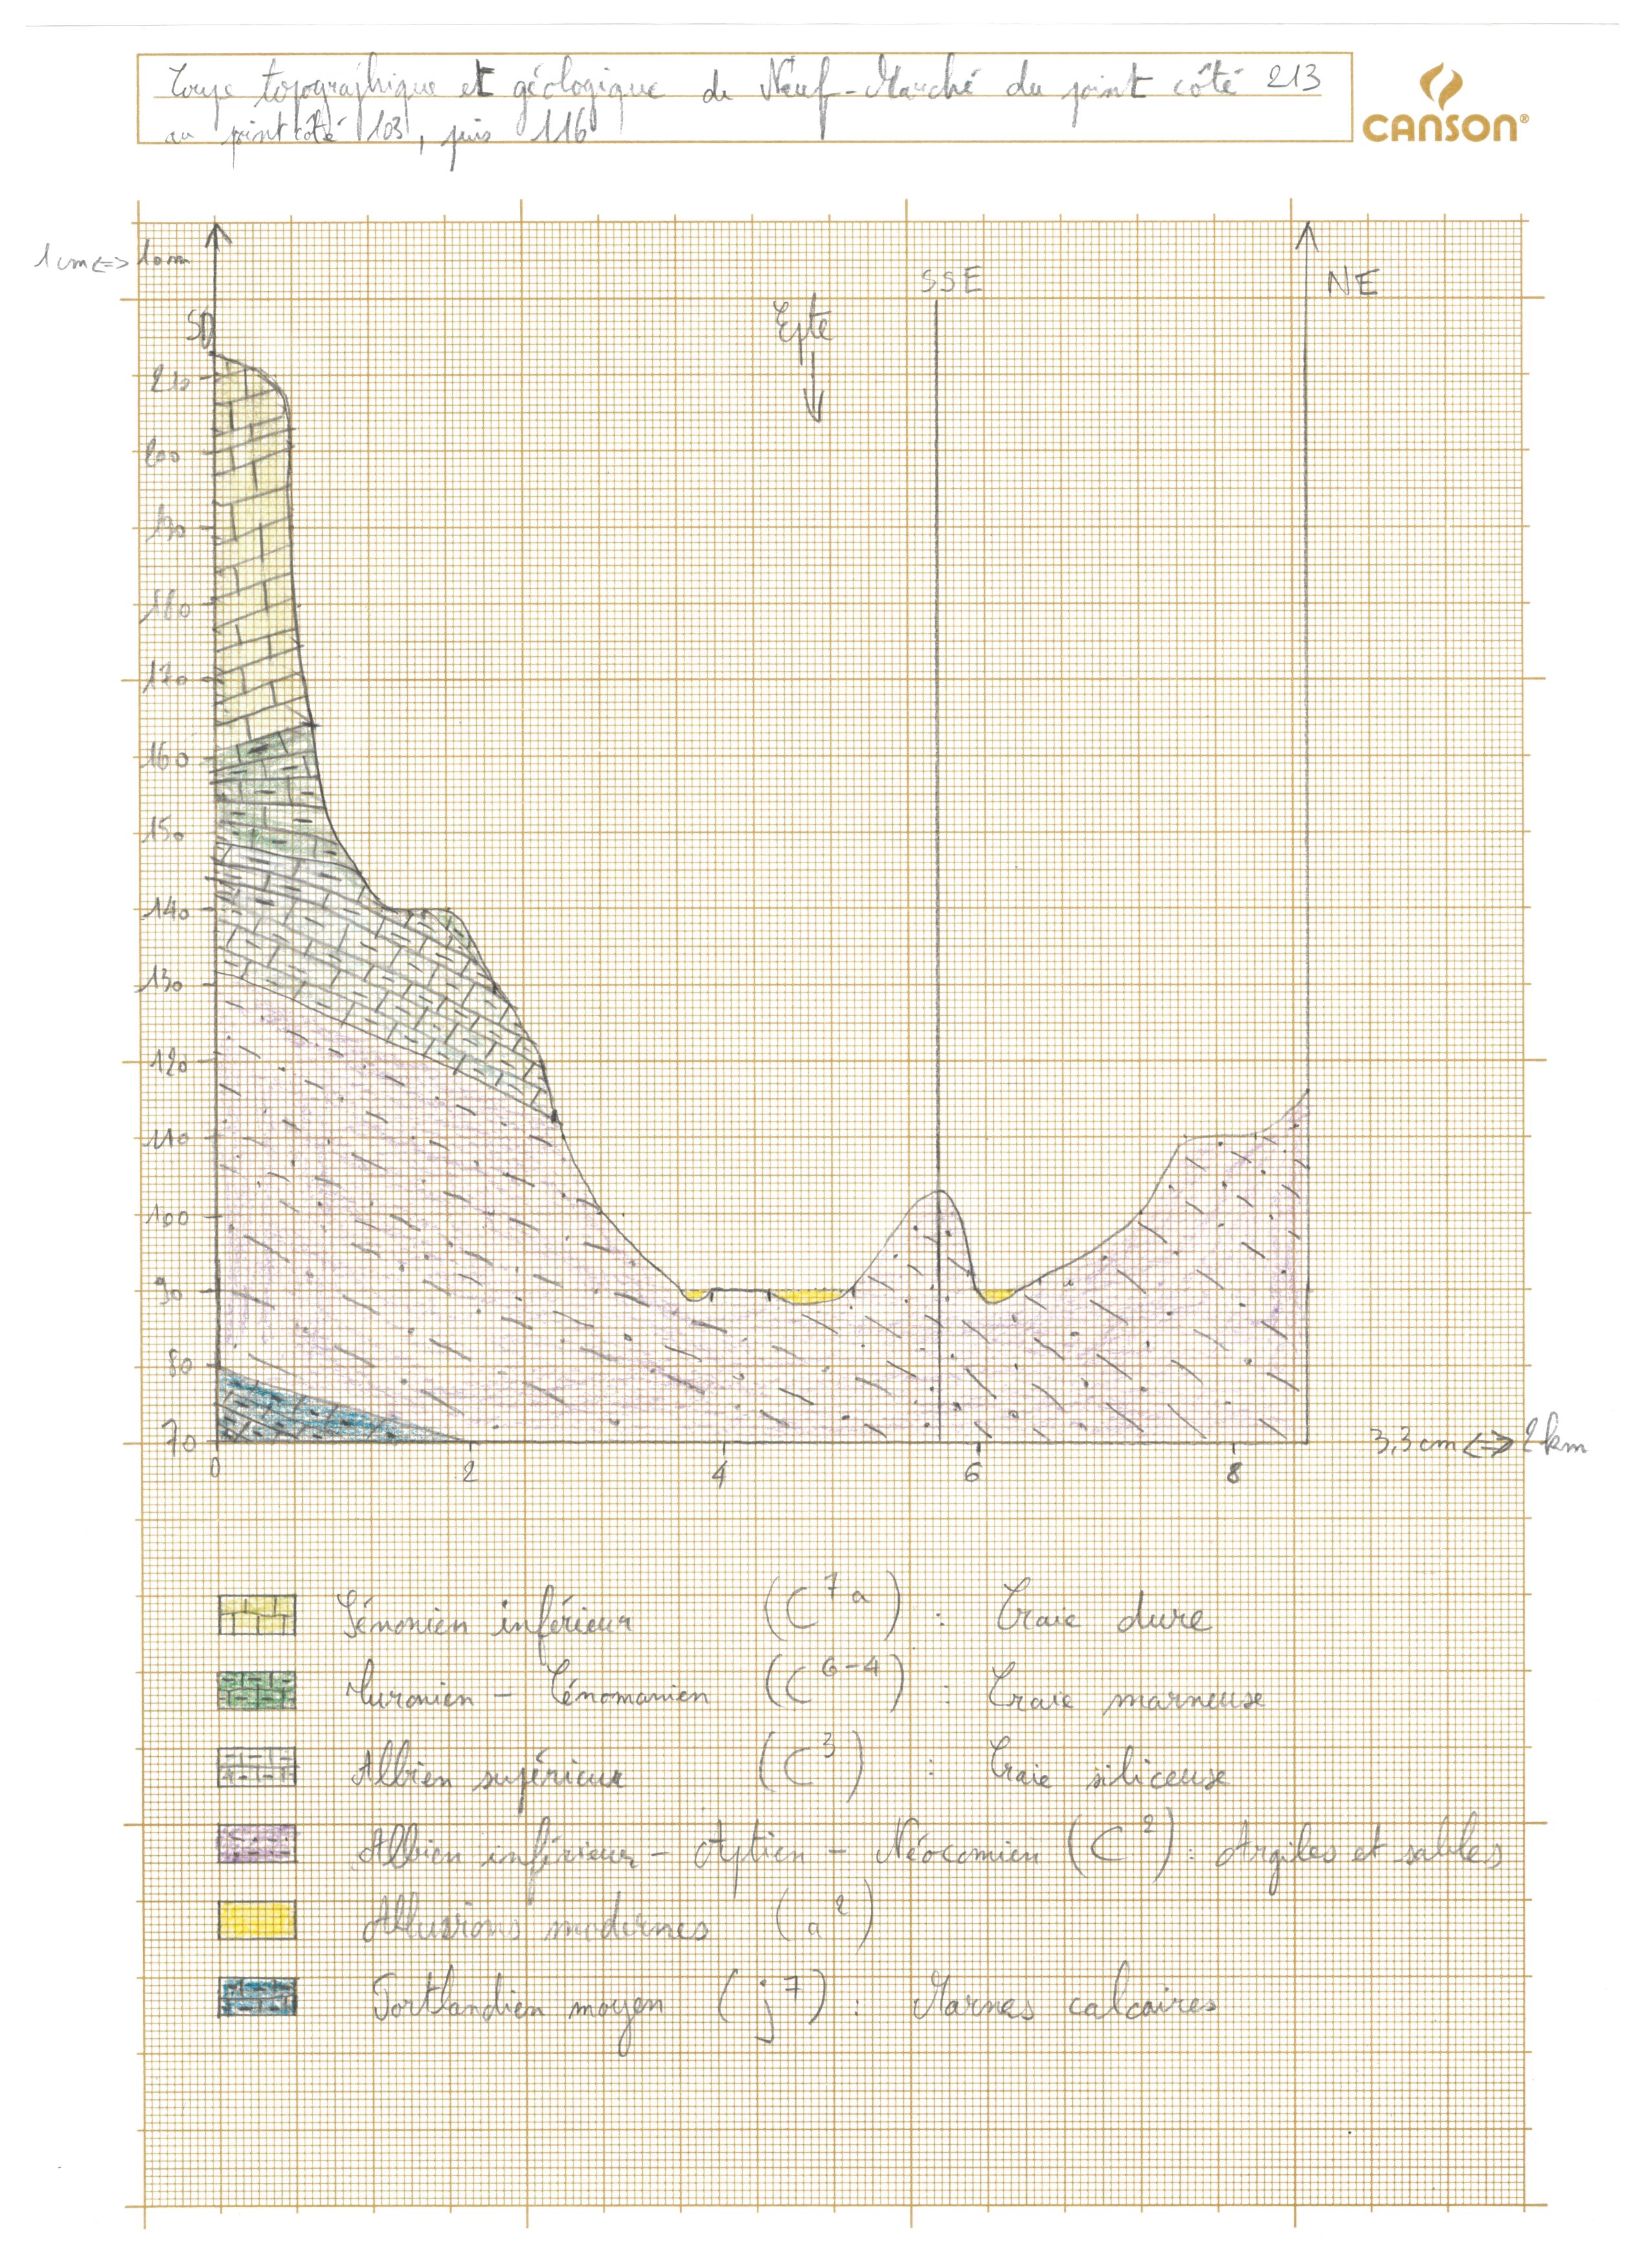 Coupe topographique et géologique de Neuf-Marché du point côté 213
au point côté 103, puis 116
CANSON®
1 cm <=> 10 m
SSE
NE
SO
Epte
210
200
190
180
170
160
150
140
130
120
110
100
90
80
70
0 2 4 6 8
3,3 cm <=> 2 km
Sénonien inférieur (C 7a) : Craie dure
Turonien - Cénomanien (C 6-4) : Craie marneuse
Albien supérieur (C 3) : Craie siliceuse
Albien inférieur - Aptien - Néocomien (C 2) : Argiles et sables
Alluvions modernes (a 2)
Portlandien moyen (j 7) : Marnes calcaires